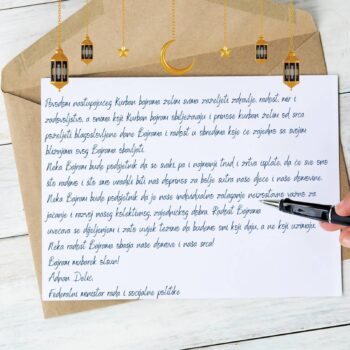 Povodom nastupajućeg Kurban bajrama želim svima zaželjeti zdravlje, radost, mir i
zadovoljstvo, a onima koji Kurban bajram obilježavaju i prinose kurban želim od srca
poželjeti blagoslovljene dane Bajrama i radost u obredima koje će zajedno sa svojim
bližnjima ovog Bajrama obaviti.
Neka Bajram bude podsjetnik da se svaki, pa i najmanji trud i žrtva isplate, da će sve ono
što radimo i što smo uradili biti naš doprinos za bolje sutra naše djece i naše domovine.
Neka Bajram bude podsjetnik da je naše individualno zalaganje neizostavno važno za
jačanje i razvoj našeg kolektivnog, zajedničkog dobra. Radost Bajrama
uvećava se dijeljenjem i zato uvijek težimo da budemo oni koji daju, a ne koji uzimaju.
Neka radost Bajrama obasja naše domove i naša srca!
Bajram mubarek olsun!
Adnan Delić,
Federalni ministar rada i socijalne politike